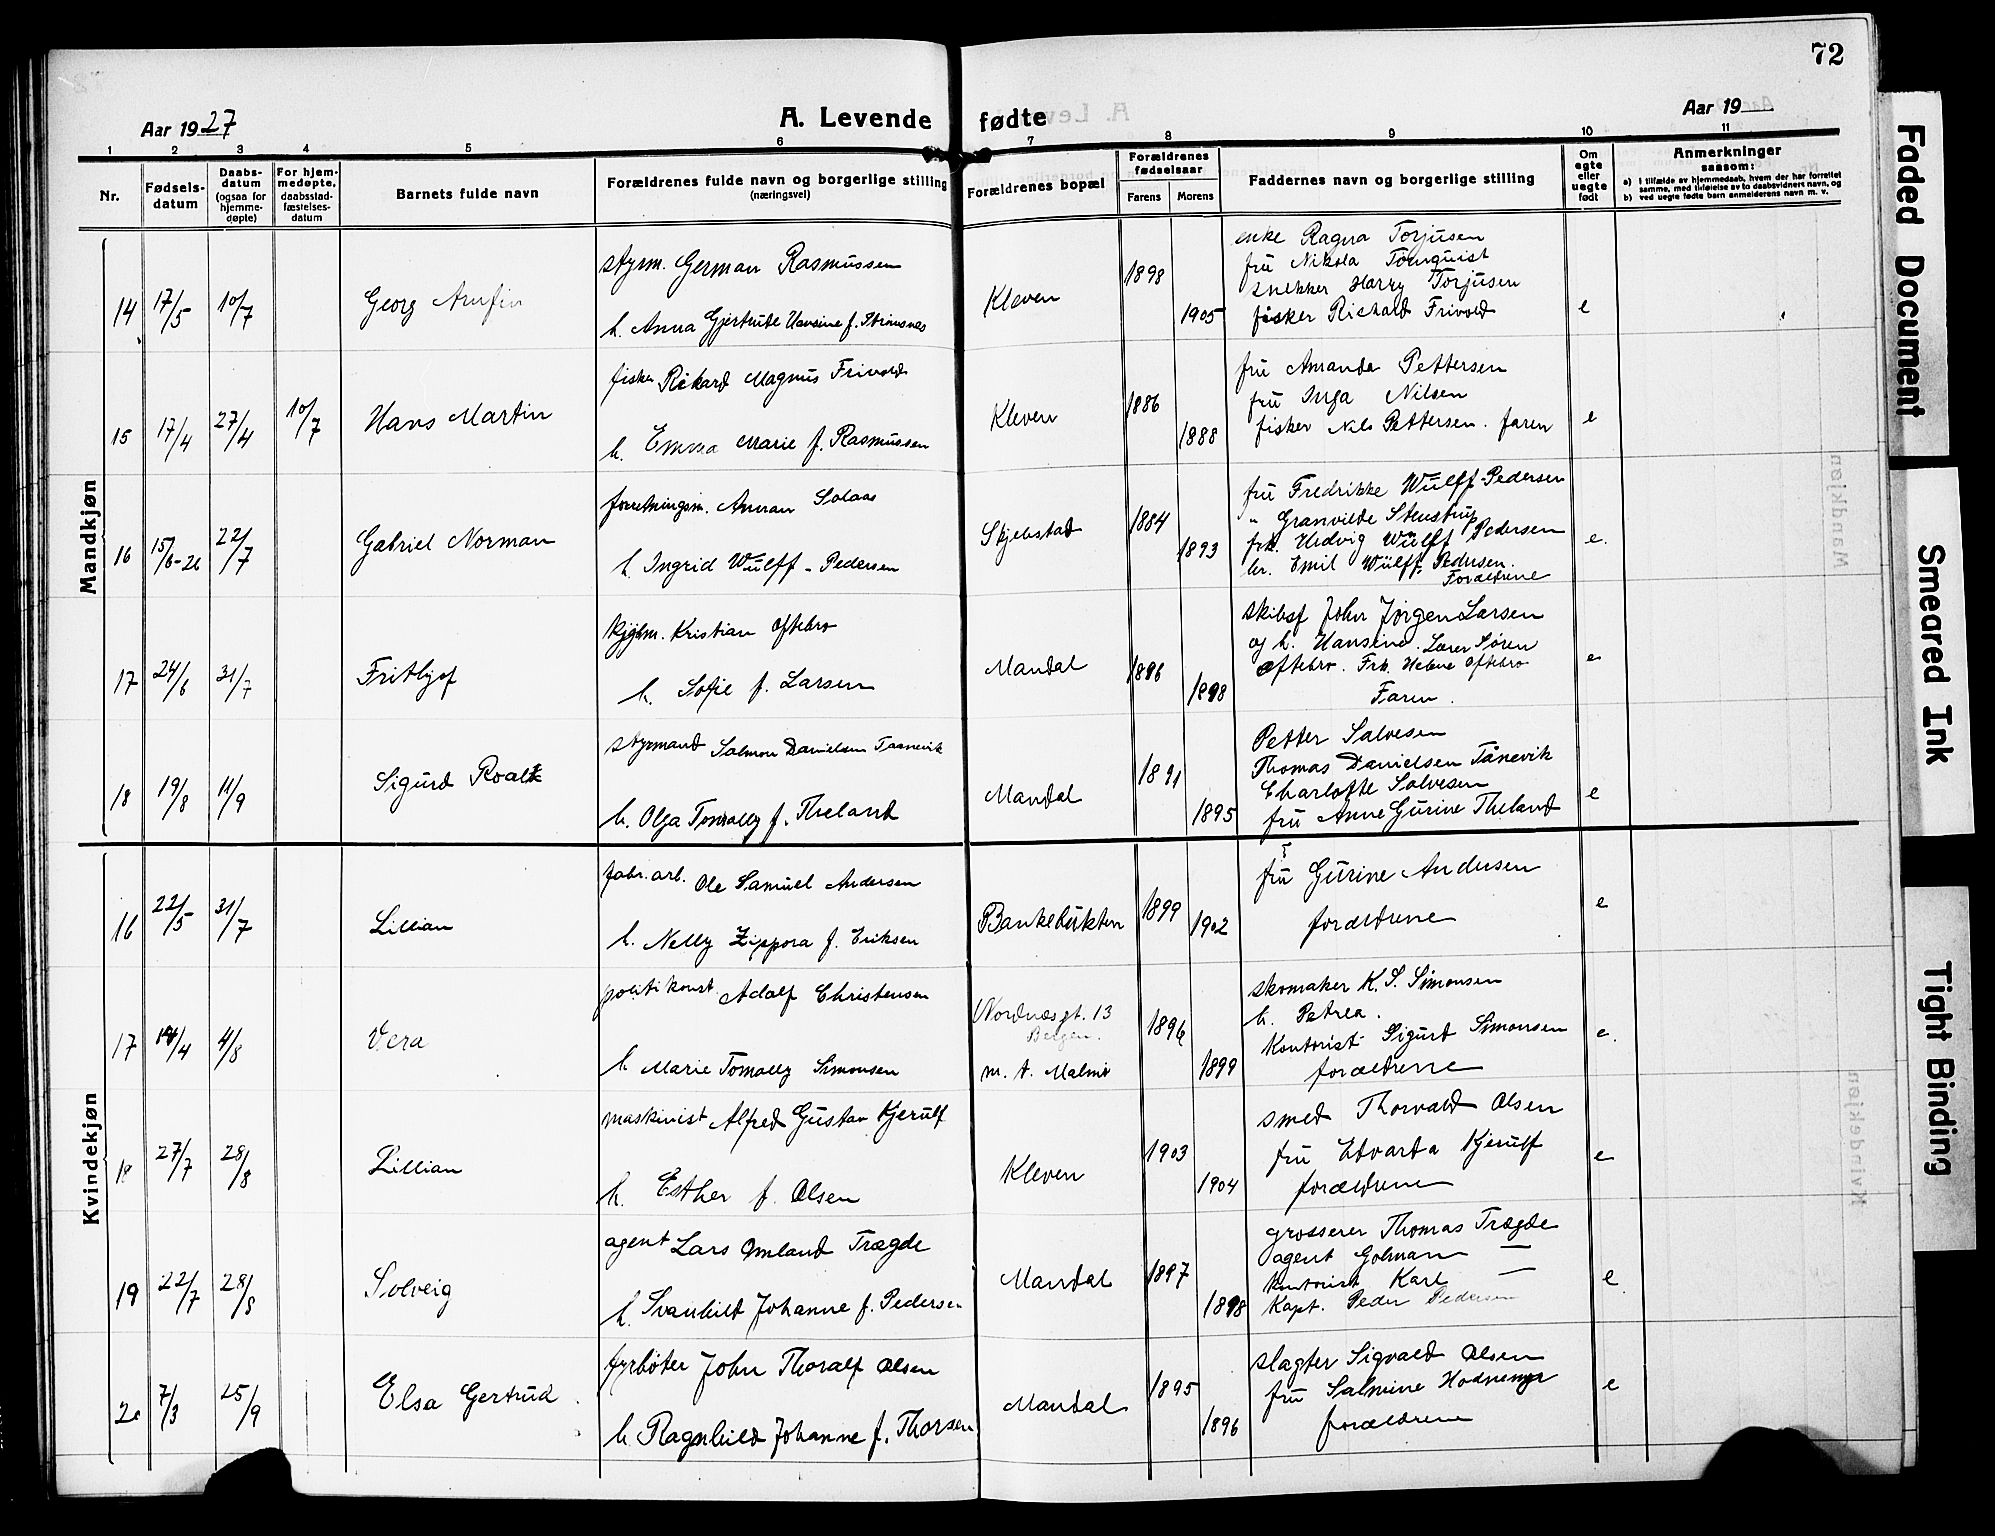 72
Aar 1927
A. Levende fødte
Aar 19
1 2 3 4 5 6 7 8 9 10 11
Nr.
Fødsels-
datum
Daabs-
datum
(ogsaa for
hjemme-
døpte)
For hjem-
medøpte,
daabsstad-
fæstelses-
datum
Barnets fulde navn
Forældrenes fulde navn og borgerlige stilling
(næringsvei)
Forældrenes bopæl
Forældrenes
fødselsaar
Farens Morens
Faddernes navn og borgerlige stilling
Om
egte
eller
uegte
født
Anmerkninger
saasom:
a) i tilfælde av hjemmedaab, hvem der har forrettet
samme, med tilføielse av to daabsvidners navn, og
b) ved uegte fødte barn anmelderens navn m. v.
Mandkjøn
14 17/5 10/7 Georg Arnfin
styrm. German Rasmussen
h. Anna Gjertrute Hansine f. Strømsnes
Kleven 1898 1905
enke Ragna Torjusen
fru Nikola Törnquist
snekker Harry Torjusen
fisker Richald Frivold
e
15 17/4 27/4 10/7 Hans Martin
fisker Rikard Magnus Frivold
h. Emma Marie f. Rasmussen
Kleven 1886 1888
fru Amanda Pettersen
fru Inga Nilsen
fisker Nils Pettersen. faren
e
16 15/6-26 22/7 Gabriel Norman
forretningsm. Anman Solaas
h. Ingrid Wulff-Pedersen
Skjebstad 1884 1893
fru Fredrikke Wulff-Pedersen
" Granvilde Stenstrup
frk. Hedvig Wulff Pedersen
hr. Emil Wülff Pedersen.
Forældrene
e.
17 24/6 31/7 Frithjof
kjøbm. Kristian Oftebro
h. Sofie f. Larsen
Mandal 1896 1898
skibsf John Jørgen Larsen
og h. Hansine. Lærer Søren
Oftebro. Frk. Helene Oftebro
Faren.
e
18 19/8 11/9 Sigurd Roalt
styrmand Salmon Danielsen Taanevik
h. Olga Tomally f. Theland
Mandal 1891 1895
Petter Salvesen
Thomas Danielsen Tånevik
Charlotte Salvesen
fru Anne Gurine Theland
e
Kvindekjøn
16 22/5 31/7 Lillian
fabr.arb. Ole Samuel Andersen
h. Nelly Zippora f. Eriksen
Bankebukten 1899 1902
fru Gurine Andersen
forældrene
e
17 14/4 4/8 Vera
politikonst. Adolf Christensen
h Marie Tomally Simonsen
Nordnæsgt. 13
Bergen.
m. t. Malmø
1896 1899
skomaker K. S. Simonsen
h. Petrea.
Kontorist Sigurd Simonsen
forældrene
e.
18 27/7 28/8 Lillian
maskinist Alfred Gustav Kjerulf
h. Esther f. Olsen
Kleven 1903 1904
smed Thorvald Olsen
fru Edvarda Kjerulf
forældrene
e
19 22/7 28/8 Solveig
agent Lars Omland Trægde
h. Svanhild Johanne f. Pedersen
Mandal 1897 1898
grosserer Thomas Trægde
agent Golman —
Kontorist Karl —
Kapt. Peder Pedersen
e
20 7/3 25/9 Elsa Gertrud
fyrbøter John Thoralf Olsen
h. Ragnhild Johanne f. Thorsen
Mandal 1895 1896
slagter Sigvald Olsen
fru Salmine Hodnemyr
forældrene
e
Faded Document
Smeared Ink
Tight Binding